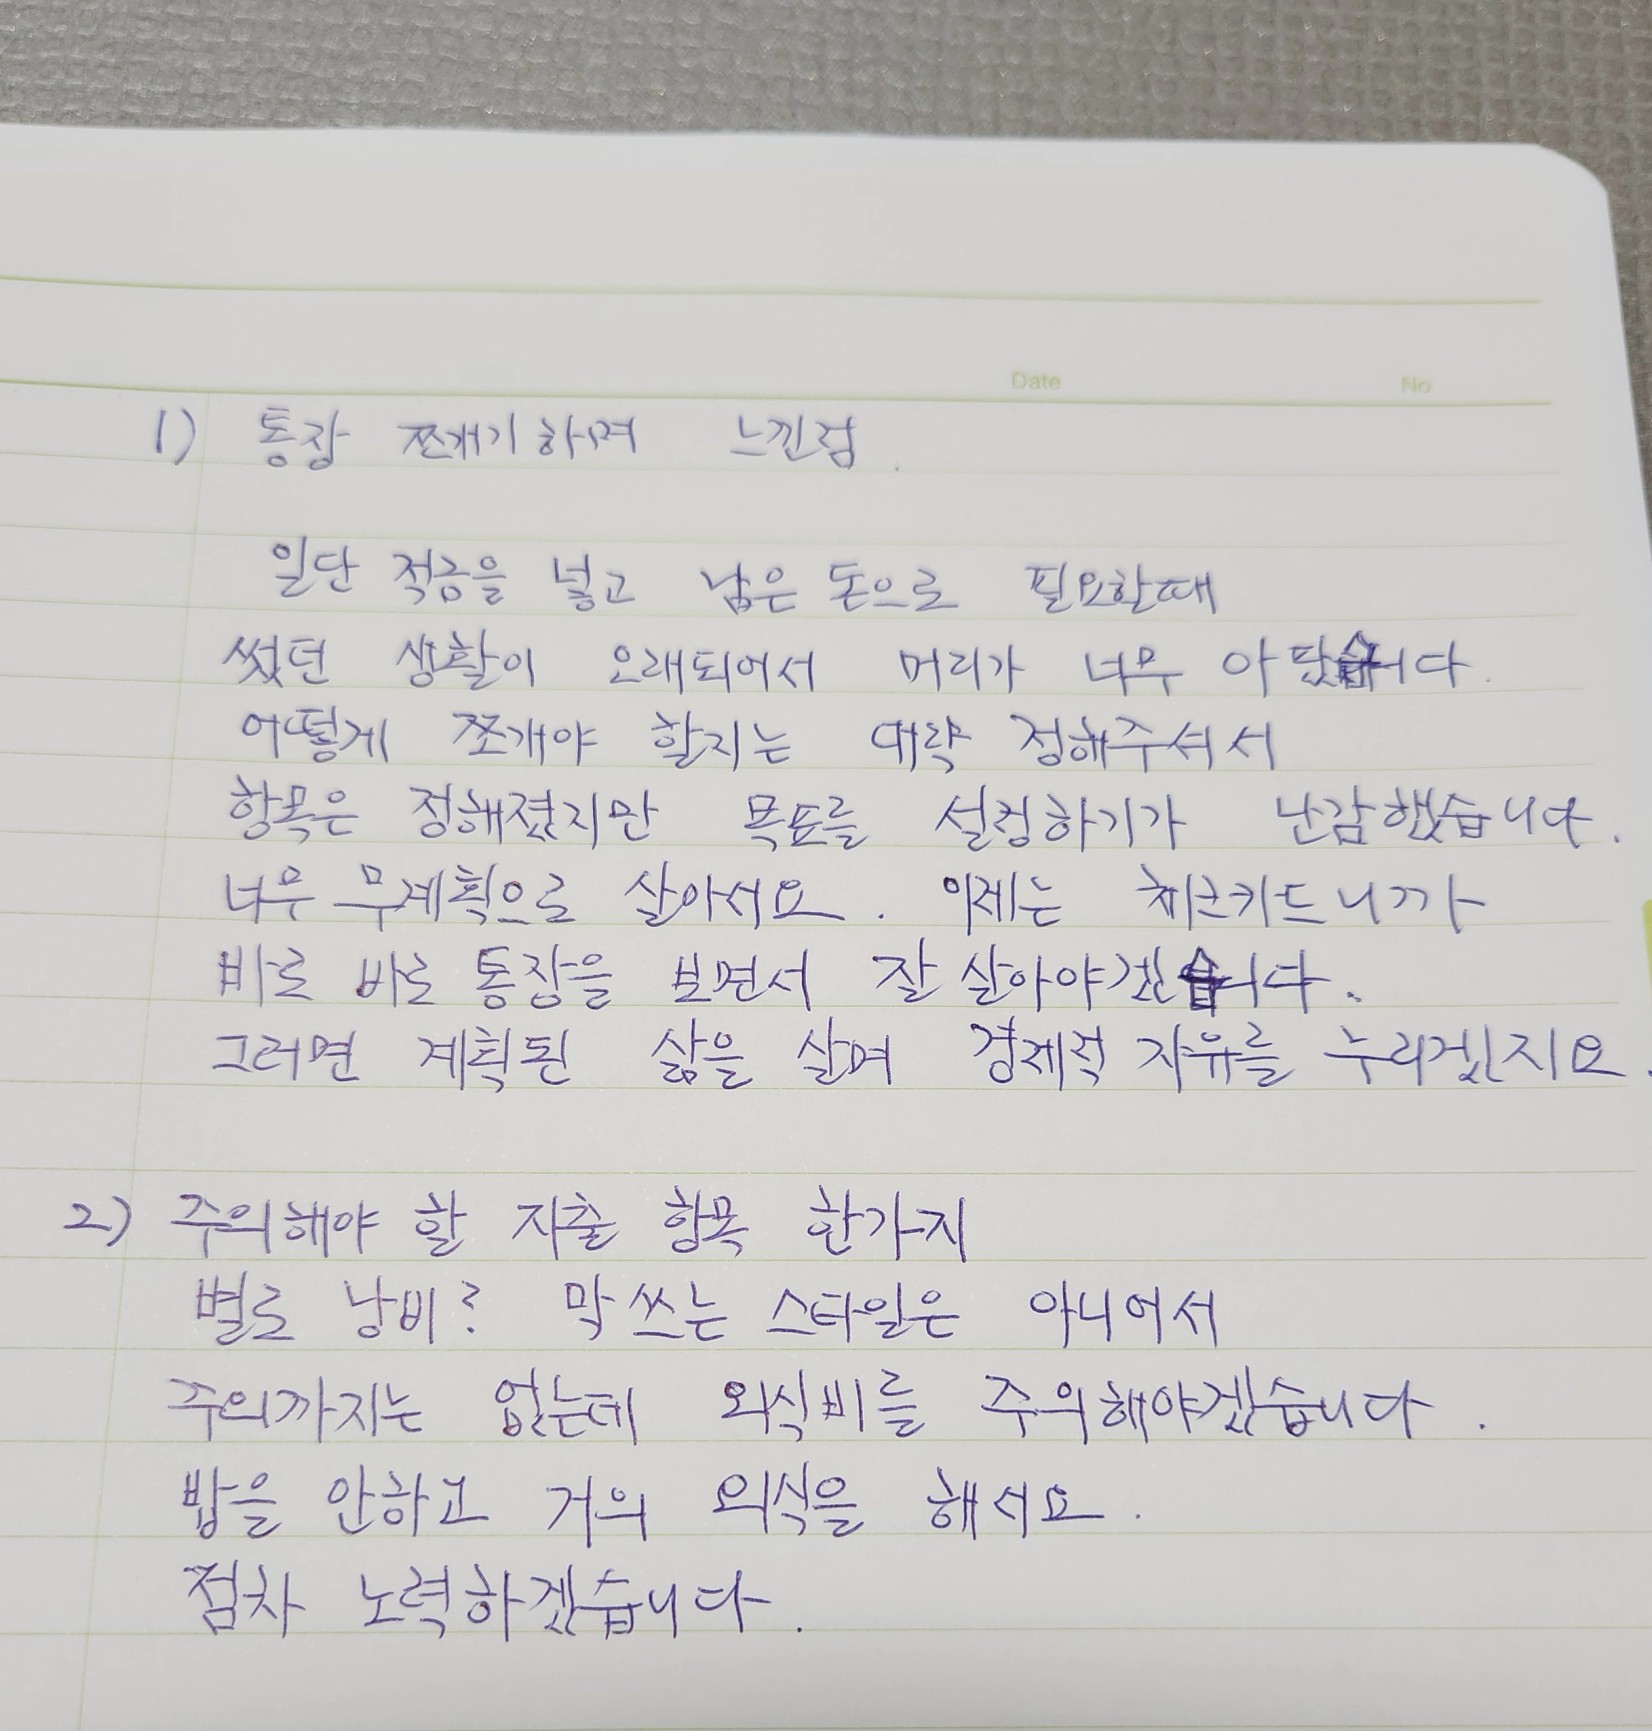 Date No
1) 통장 쪼개기하며 느낀점.
일단 적금을 넣고 남은 돈으로 필요할때
썼던 생활이 오래되어서 머리가 너무 아팠습니다.
어떻게 쪼개야 할지는 대략 정해주셔서
항목은 정해졌지만 목표를 설정하기가 난감했습니다.
너무 무계획으로 살아서요. 이제는 체크카드니까
바로 바로 통장을 보면서 잘 살아야겠습니다.
그러면 계획된 삶을 살며 경제적 자유를 누리겠지요.
2) 주의해야 할 지출 항목 한가지
별로 낭비? 막 쓰는 스타일은 아니어서
주의까지는 없는데 외식비를 주의해야겠습니다.
밥을 안하고 거의 외식을 해서요.
점차 노력하겠습니다.